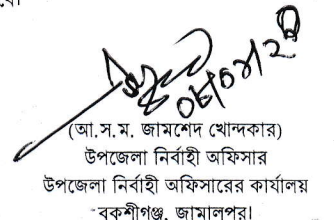 (আ.স.ম. জামশেদ খোন্দকার)
উপজেলা নির্বাহী অফিসার
উপজেলা নির্বাহী অফিসারের কার্যালয়
বকশীগঞ্জ, জামালপুর।